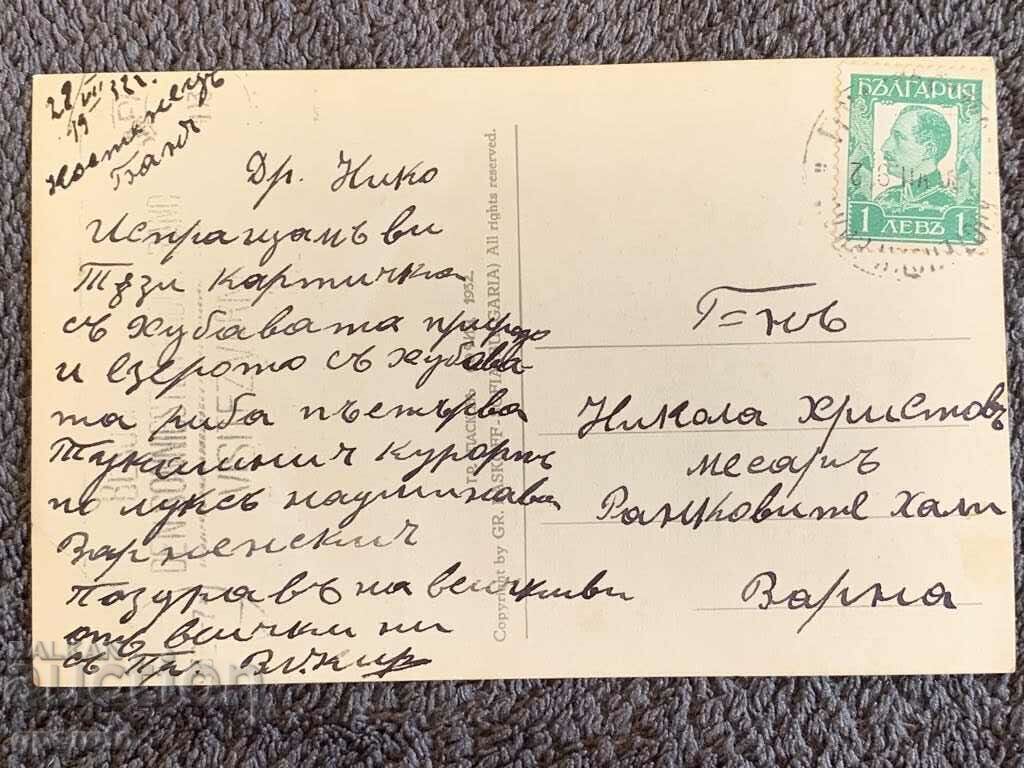 28/VII
19 32 г.
Костенецъ
Баня
Др. Нико
Испращамъ ви
Тѣзи картичка
съ хубавата природа
и езерото съ хубава-
та риба пъстърва
Тукашния курортъ
по луксъ надминава
Варненския
Поздравъ на всички ви
отъ всички ни
съ
БЪЛГАРИЯ
1 ЛЕВЪ 1
Г-нъ
Никола Христовъ
месарь
Ранковите Хали
Варна
1932
Copyright by GR. PASKOFF - SOFIA (BULGARIA) All rights reserved.
BALKAN
auction